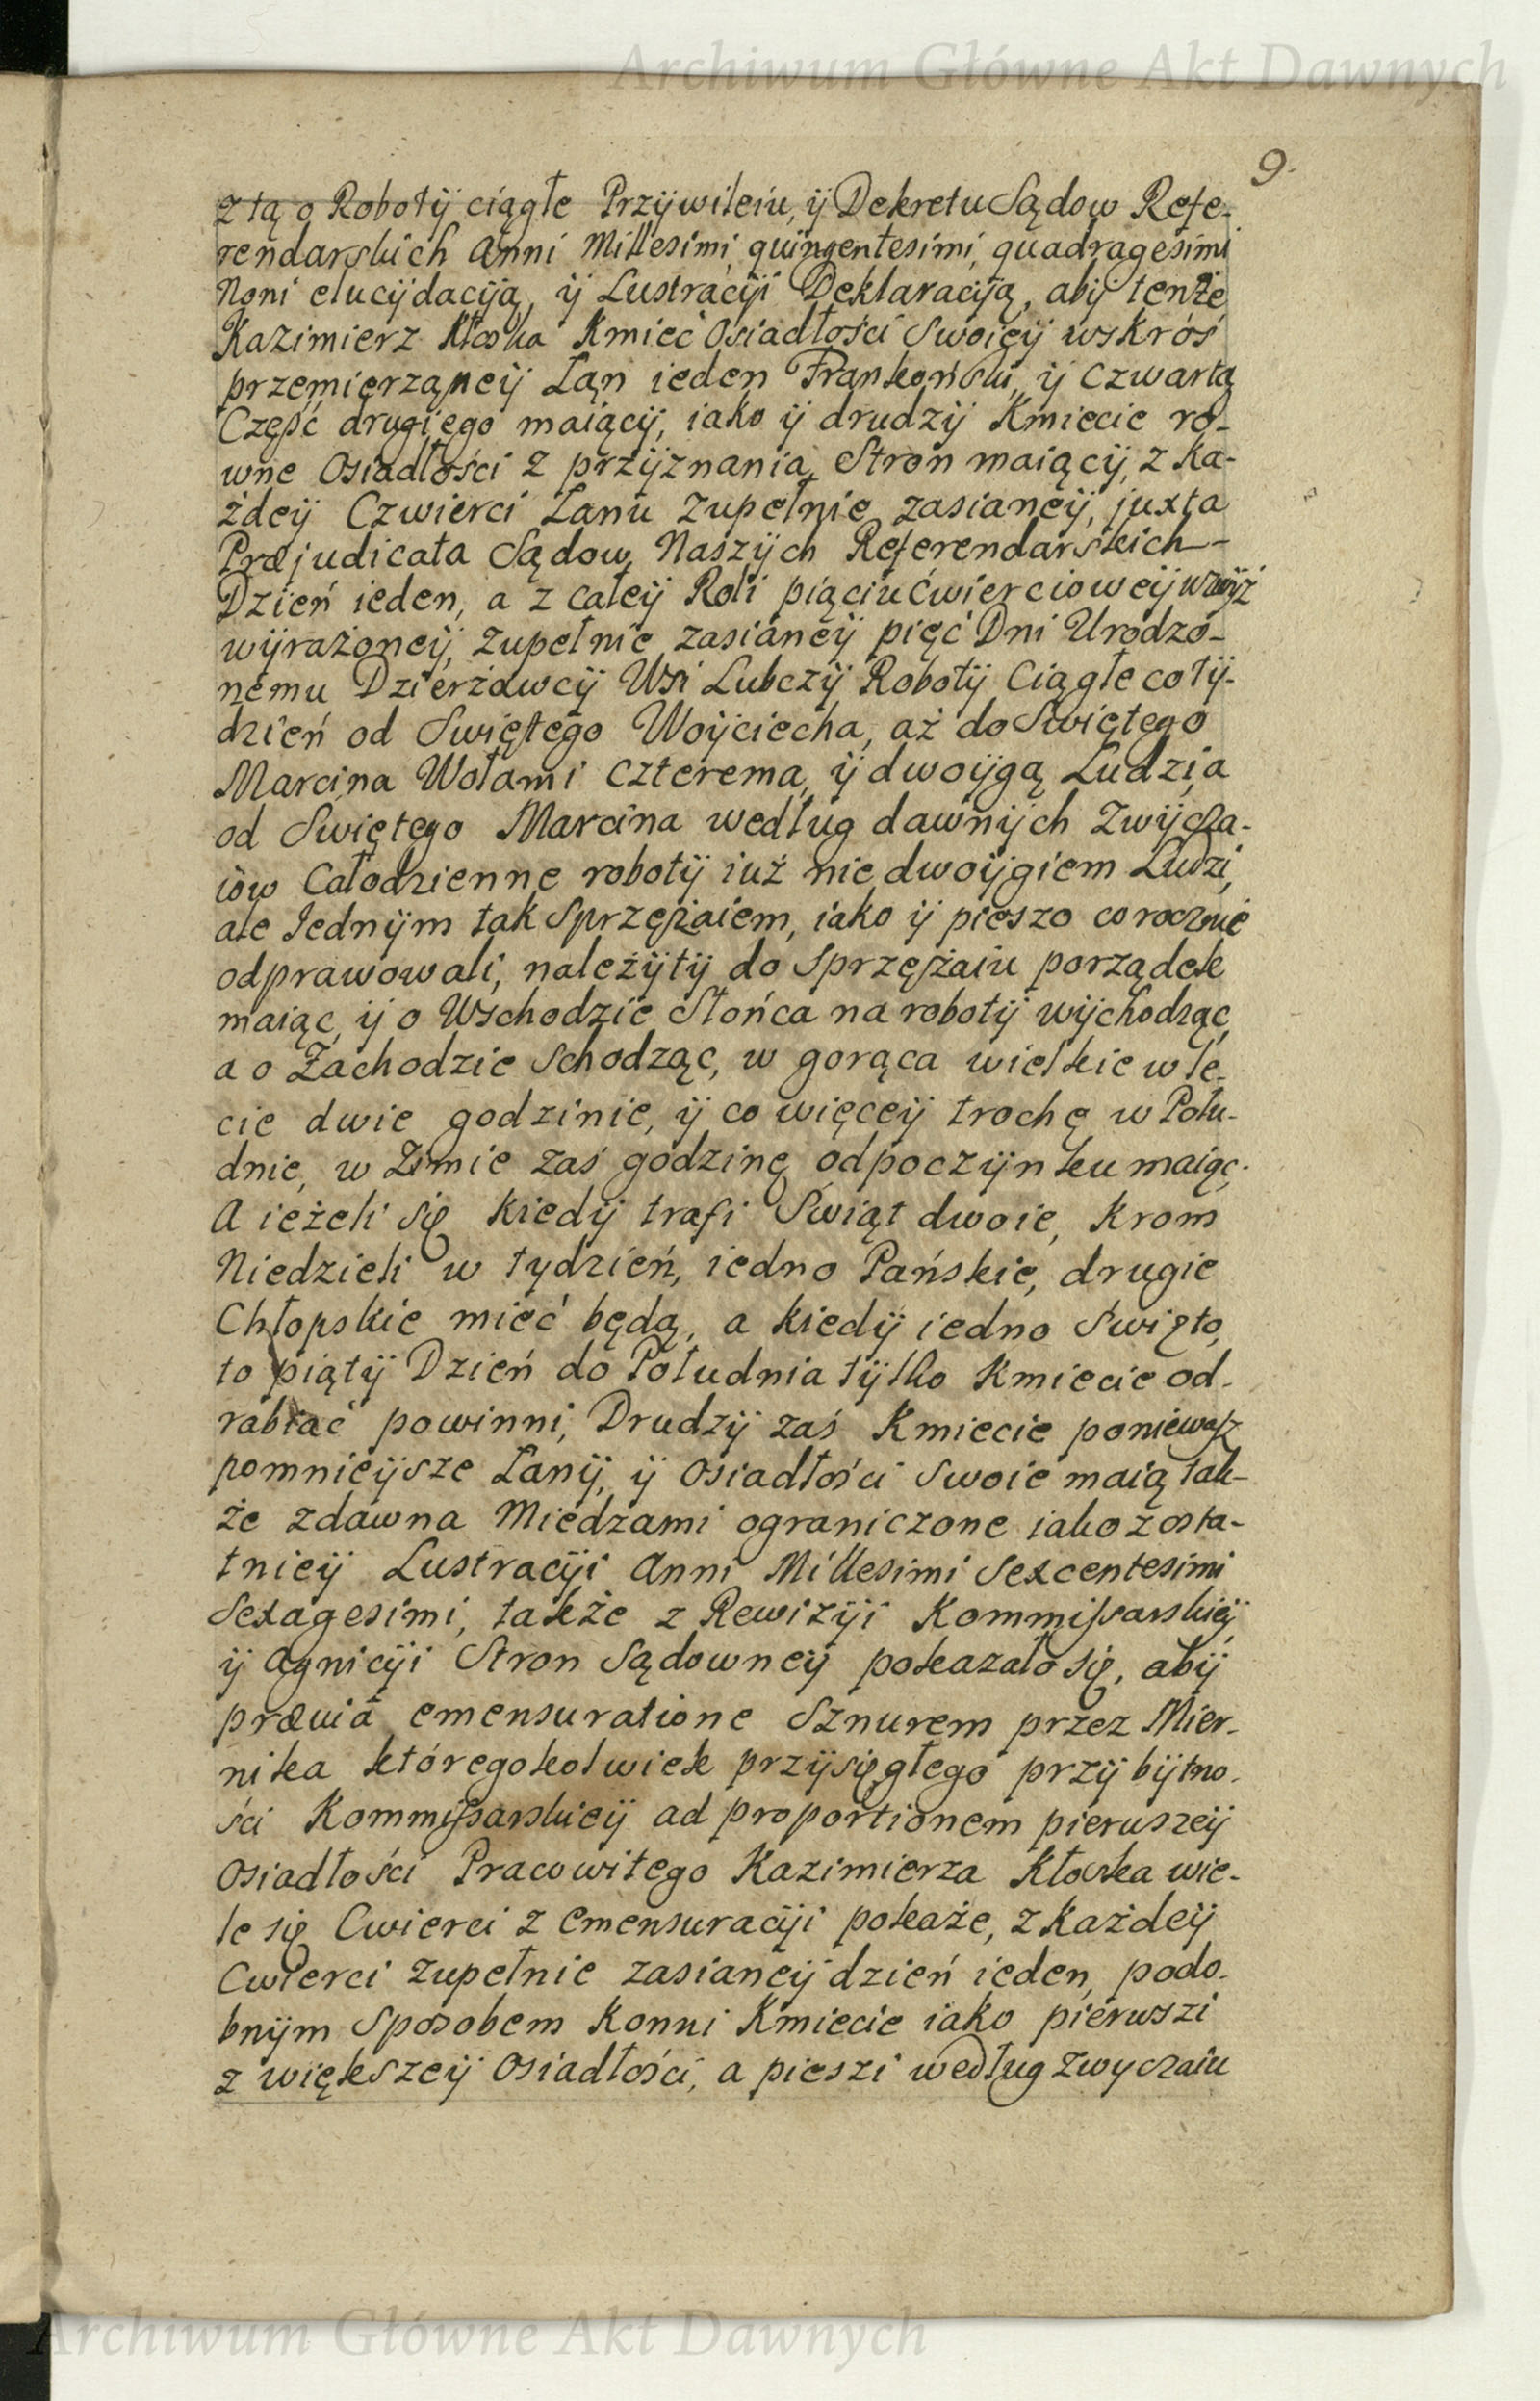 Archiwum Główne Akt Dawnych
9.
z tą o Robotÿ ciągłe Przÿwileiu, ÿ Dekretu Sądow Refe-
rendarskich Anni Millesimi, quingentesimi, quadragesimi
Noni elucÿdacÿą, ÿ Lustracÿi Deklaracÿą, abÿ tenże
Kazimierz Kłoska Kmieć Osiadłości Swoieÿ wskroś
przemierzaneÿ Łan ieden Frankoński, ÿ Czwartą
Część drugiego maiącÿ, iako ÿ drudzÿ Kmiecie ro-
wne Osiadłości z przÿznania Stron maiącÿ, z Ka-
żdeÿ Czwierci Łanu Zupełnie zasianeÿ, juxta
Præjudicata Sądow Naszÿch Referendarskich-
Dzień ieden, a z całeÿ Roli piąciućwierцioweÿ wzwÿż
wÿrażoneÿ, zupełnie zasianeÿ pięć Dni Urodzo-
nemu Dzierżawcÿ Wsi Lubczÿ Robotÿ Ciągłe co tÿ-
dzień od Swiętego Woÿciecha, aż do Swiętego
Marcina Wołami czterema, ÿ dwoÿgą Ludzia
od Swiętego Marcina według dawnÿch Zwÿcza-
iow Całodzienne robotÿ iuż nie dwoÿgiem Ludzi,
ale Jednÿm tak Sprzężaiem, iako ÿ pieszo corocznie
odprawowali, należÿtÿ do Sprzężaiu porządek
maiąc, ÿ o Wschodzie Słońca na robotÿ wÿchodząc,
a o Zachodzie Schodząc, w gorąca wielkie w le-
cie dwie godzinie, ÿ co więceÿ trochę w Połu-
dnie, w Zimie zaś godzinę odpoczÿnku maiąc.
A ieżeli się kiedÿ trafi Swiąt dwoie, krom
Niedzieli w tydzień, iedno Pańskie, drugie
Chłopskie mieć będą, a kiedÿ iedno Swięto,
to piątÿ Dzień do Południa tÿlko Kmiecie od-
rabiać powinni, Drudzÿ zaś Kmiecie ponieważ
pomnieÿsze Łanÿ, ÿ Osiadłości Swoie maią tak-
że zdawna Miedzami ograniczone iako z osta-
tnieÿ Lustracÿi Anni Millesimi Sexcentesimi
Sexagesimi, także z Rewizÿi Kommissarskieÿ
ÿ Agnicÿi Stron Sądowneÿ pokazało się, abÿ
præuia emensuratione Sznurem przez Mier-
nika któregokolwiek przÿsięgłego przÿ bÿtno-
ści Kommissarskieÿ ad proportionem pieruszeÿ
Osiadłości Pracowitego Kazimierza Kłoska wie-
le się Cwierci z emensuracÿi pokaże, z każdeÿ
Cwierci zupełnie zasianeÿ dzień ieden, podo-
bnÿm Sposobem Konni Kmiecie iako pierwszi
z większeÿ Osiadłości, a pieszi według zwyczaiu
Archiwum Główne Akt Dawnych